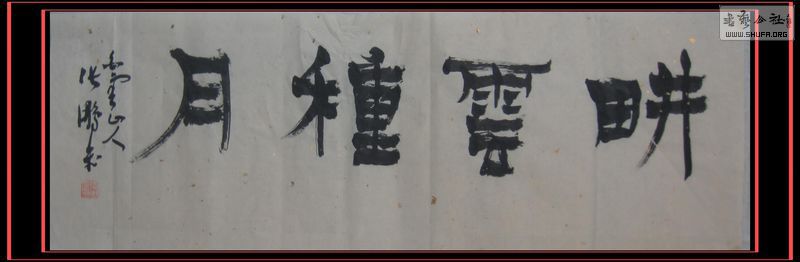 畊雲種月
山人
张鹏
书艺公社
WWW.SHUFA.ORG